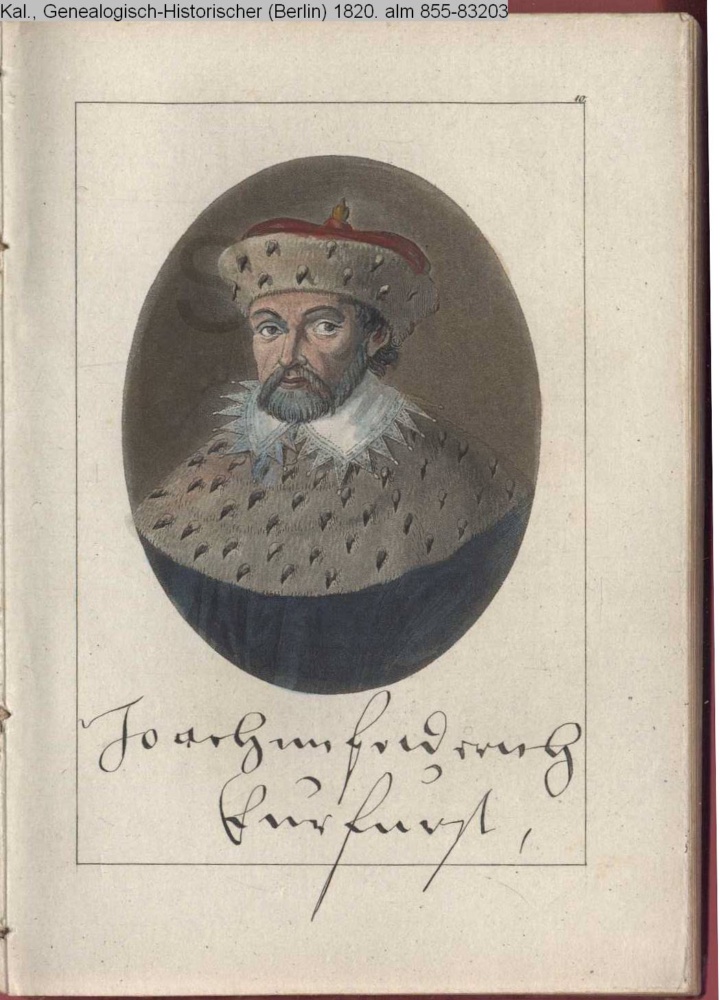 Kal., Genealogisch-Historischer (Berlin) 1820. alm 855-83203
10.
Joachim friderich
Curfurst,